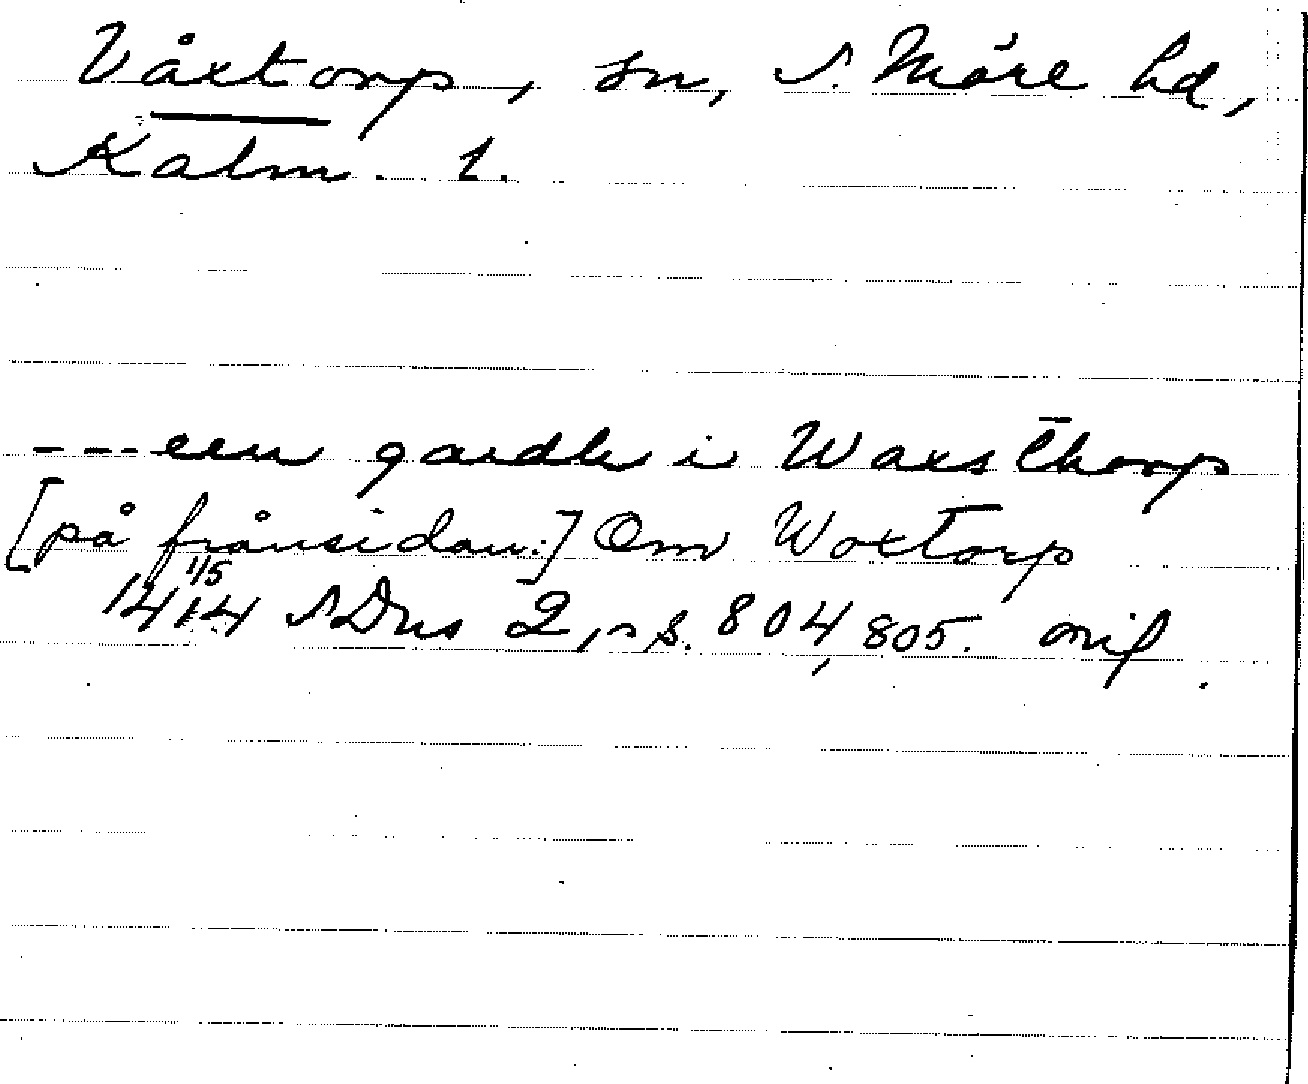 Våxtorp, sn, S. Möre hd,
Kalm. l.
---een gardh i Waxsthorp
[på frånsidan:] Om Woxtorp
1/5
1414 SDns 2, s. 804, 805. orig.